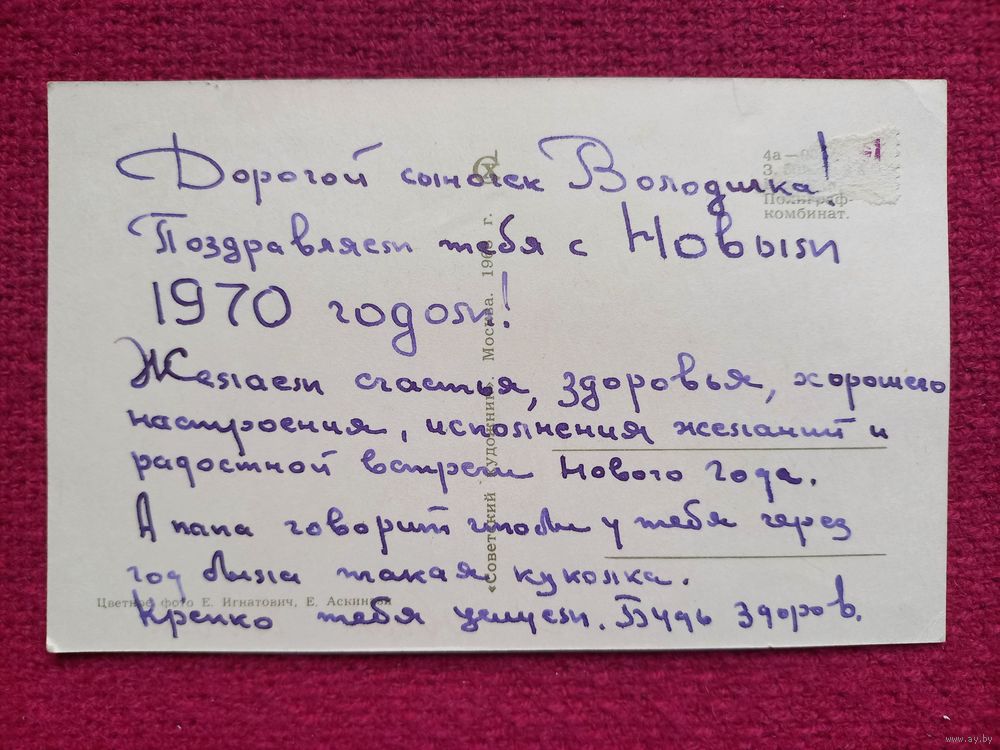 Дорогой сыночек Володичка!
Поздравляем тебя с Новым
1970 годом!
Желаем счастья, здоровья, хорошего
настроения, исполнения желаний и
радостной встречи Нового Года.
А папа говорит чтобы у тебя через
год была такая куколка.
Крепко тебя целуем. Будь здоров.
Цветное фото Е. Игнатович, Е.
«Советский художник». Москва. 196 г.
4а —
З.
Полиграф-
комбинат.
www.ay.by